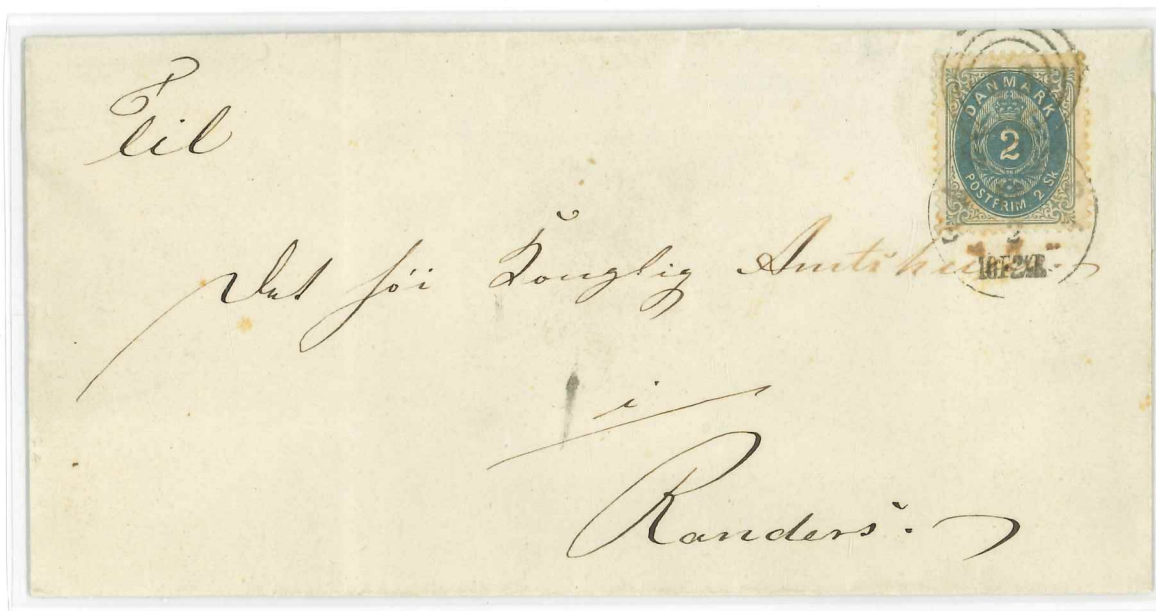 Til
DANMARK
2
POSTFRIM. 2 Sk
Det höi Konglig Amtshuus
i
Randers.